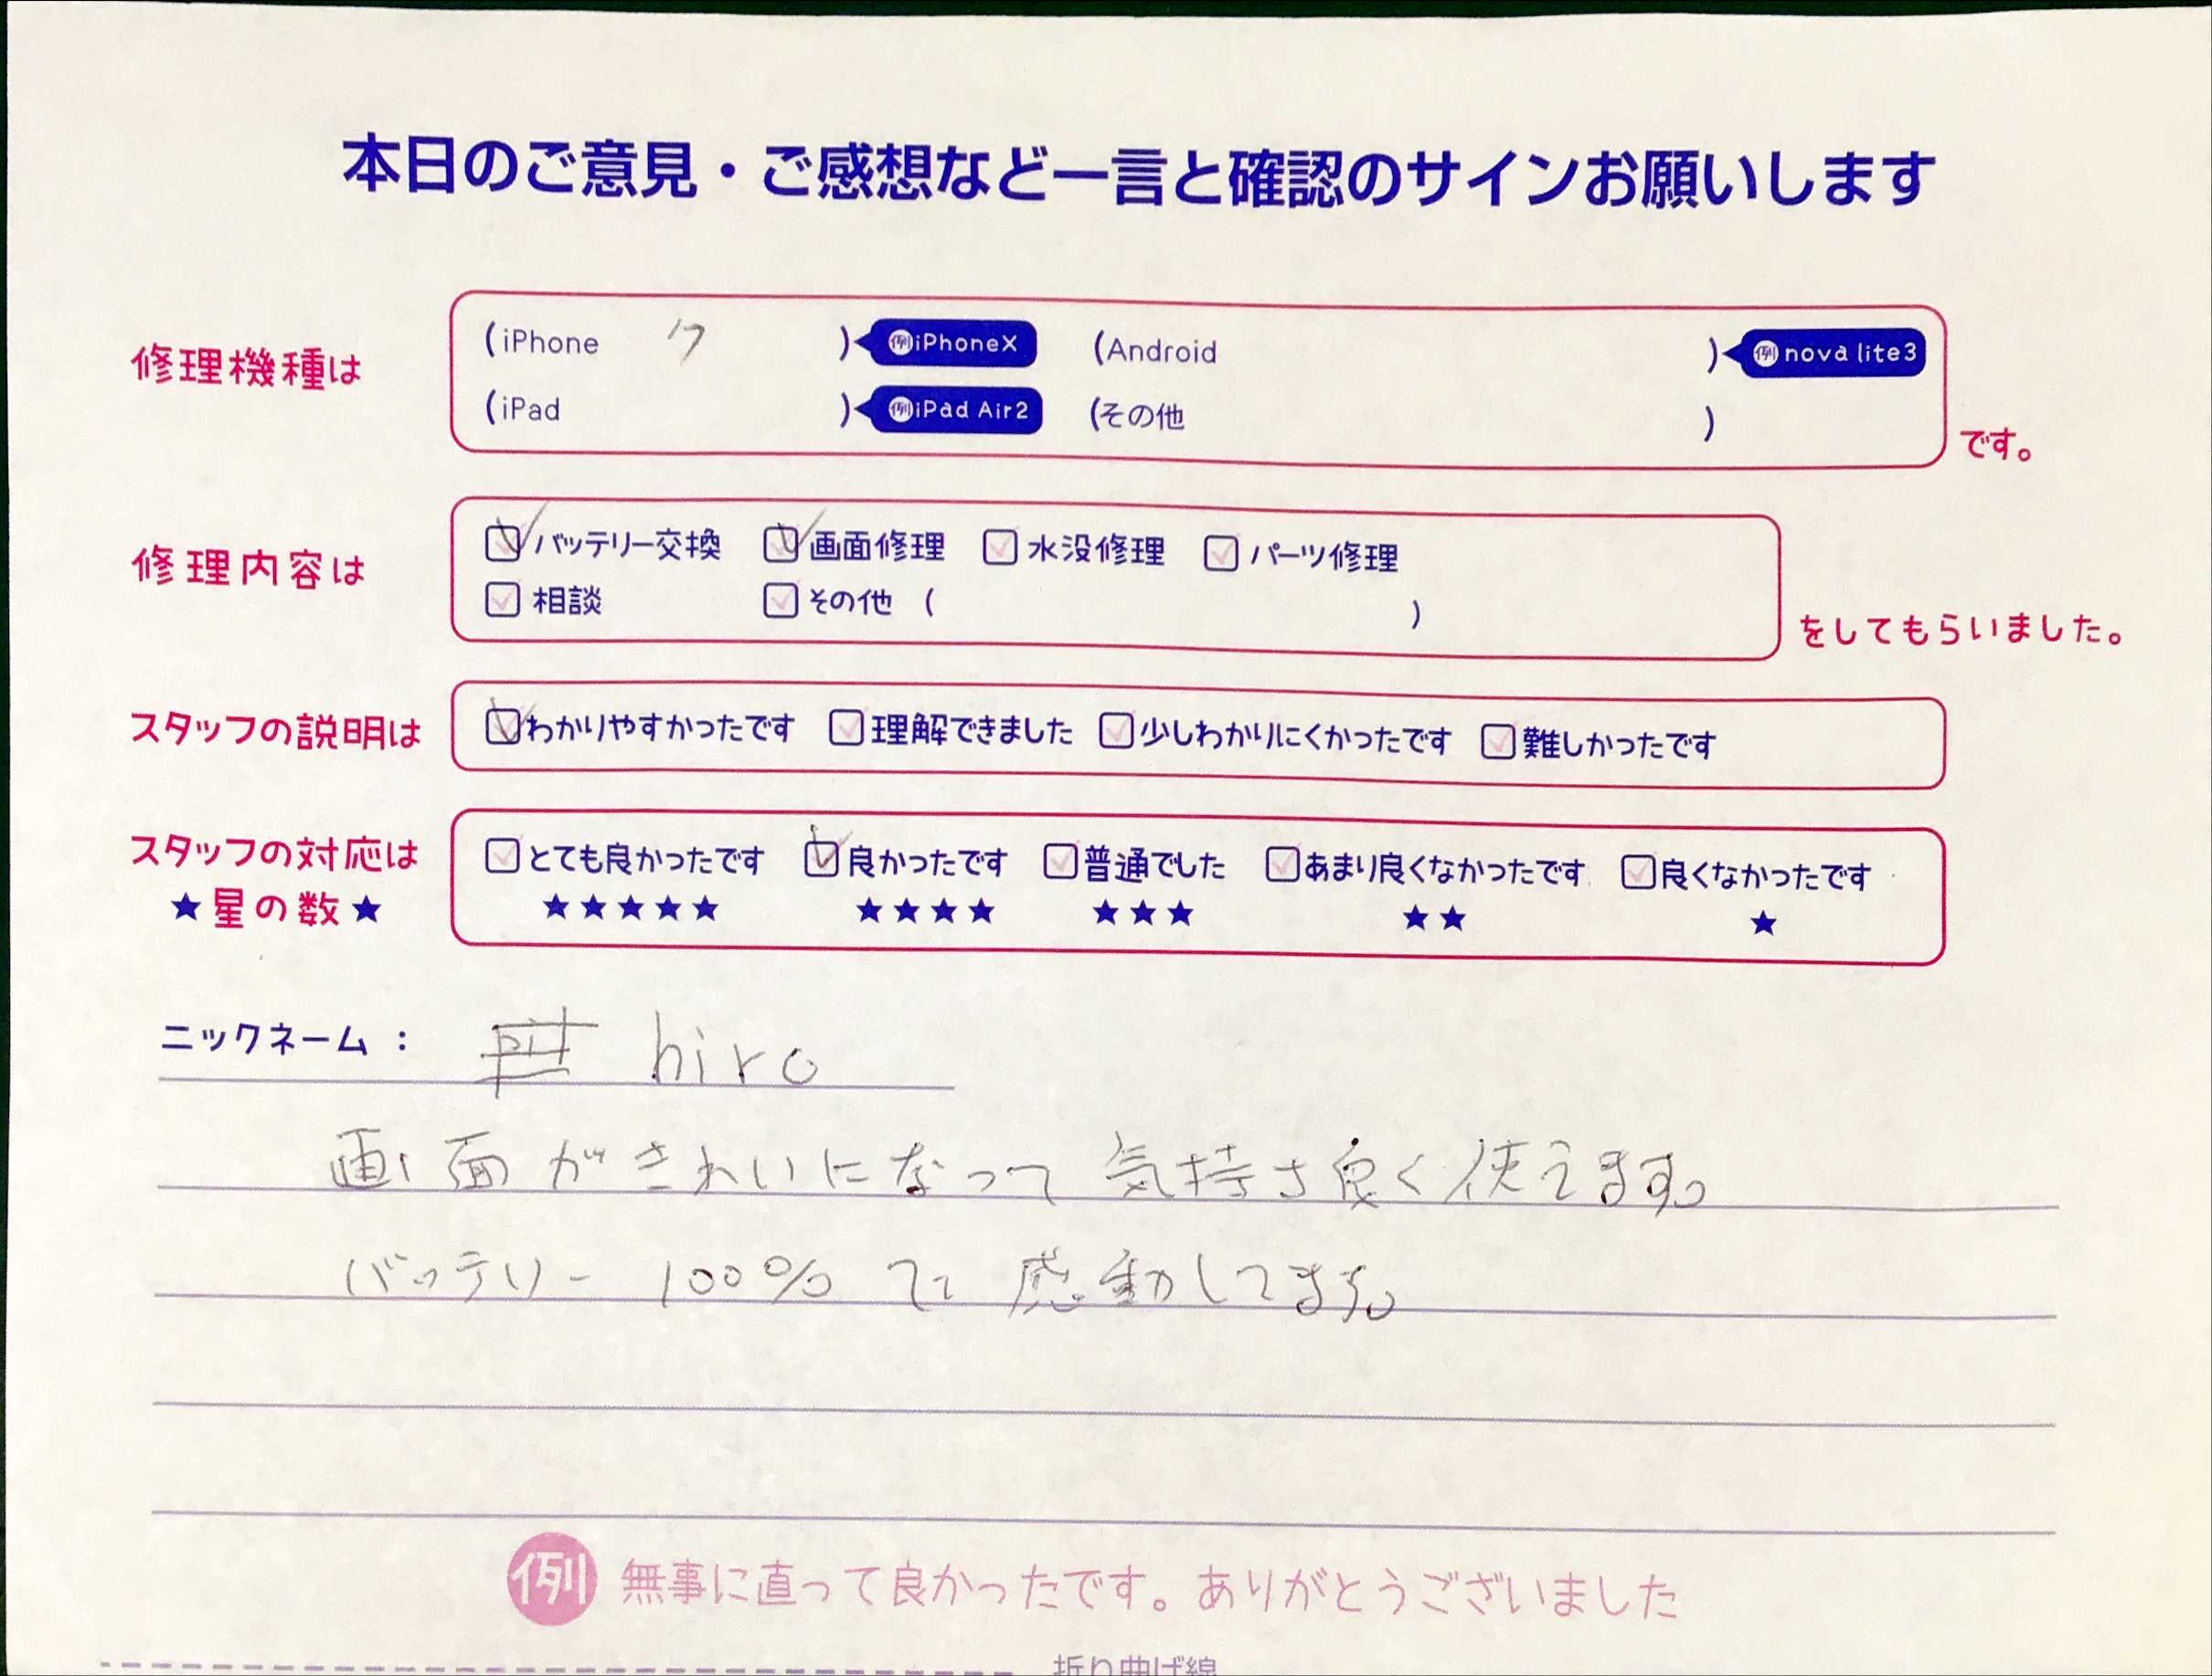 本日のご意見・ご感想など一言と確認のサインお願いします
修理機種は
(iPhone 7 ) 例iPhoneX (Android ) 例nova lite3
(iPad ) 例iPad Air2 (その他 )
です。
修理内容は
バッテリー交換 画面修理 水没修理 パーツ修理
相談 その他 ( )
をしてもらいました。
スタッフの説明は
わかりやすかったです 理解できました 少しわかりにくかったです 難しかったです
スタッフの対応は
★星の数★
とても良かったです 良かったです 普通でした あまり良くなかったです 良くなかったです
★★★★★ ★★★★ ★★★ ★★ ★
ニックネーム： hiro
画面がきれいになって気持ち良く使えます。
バッテリー 100% で感動してます。
例 無事に直って良かったです。ありがとうございました
折り曲げ線